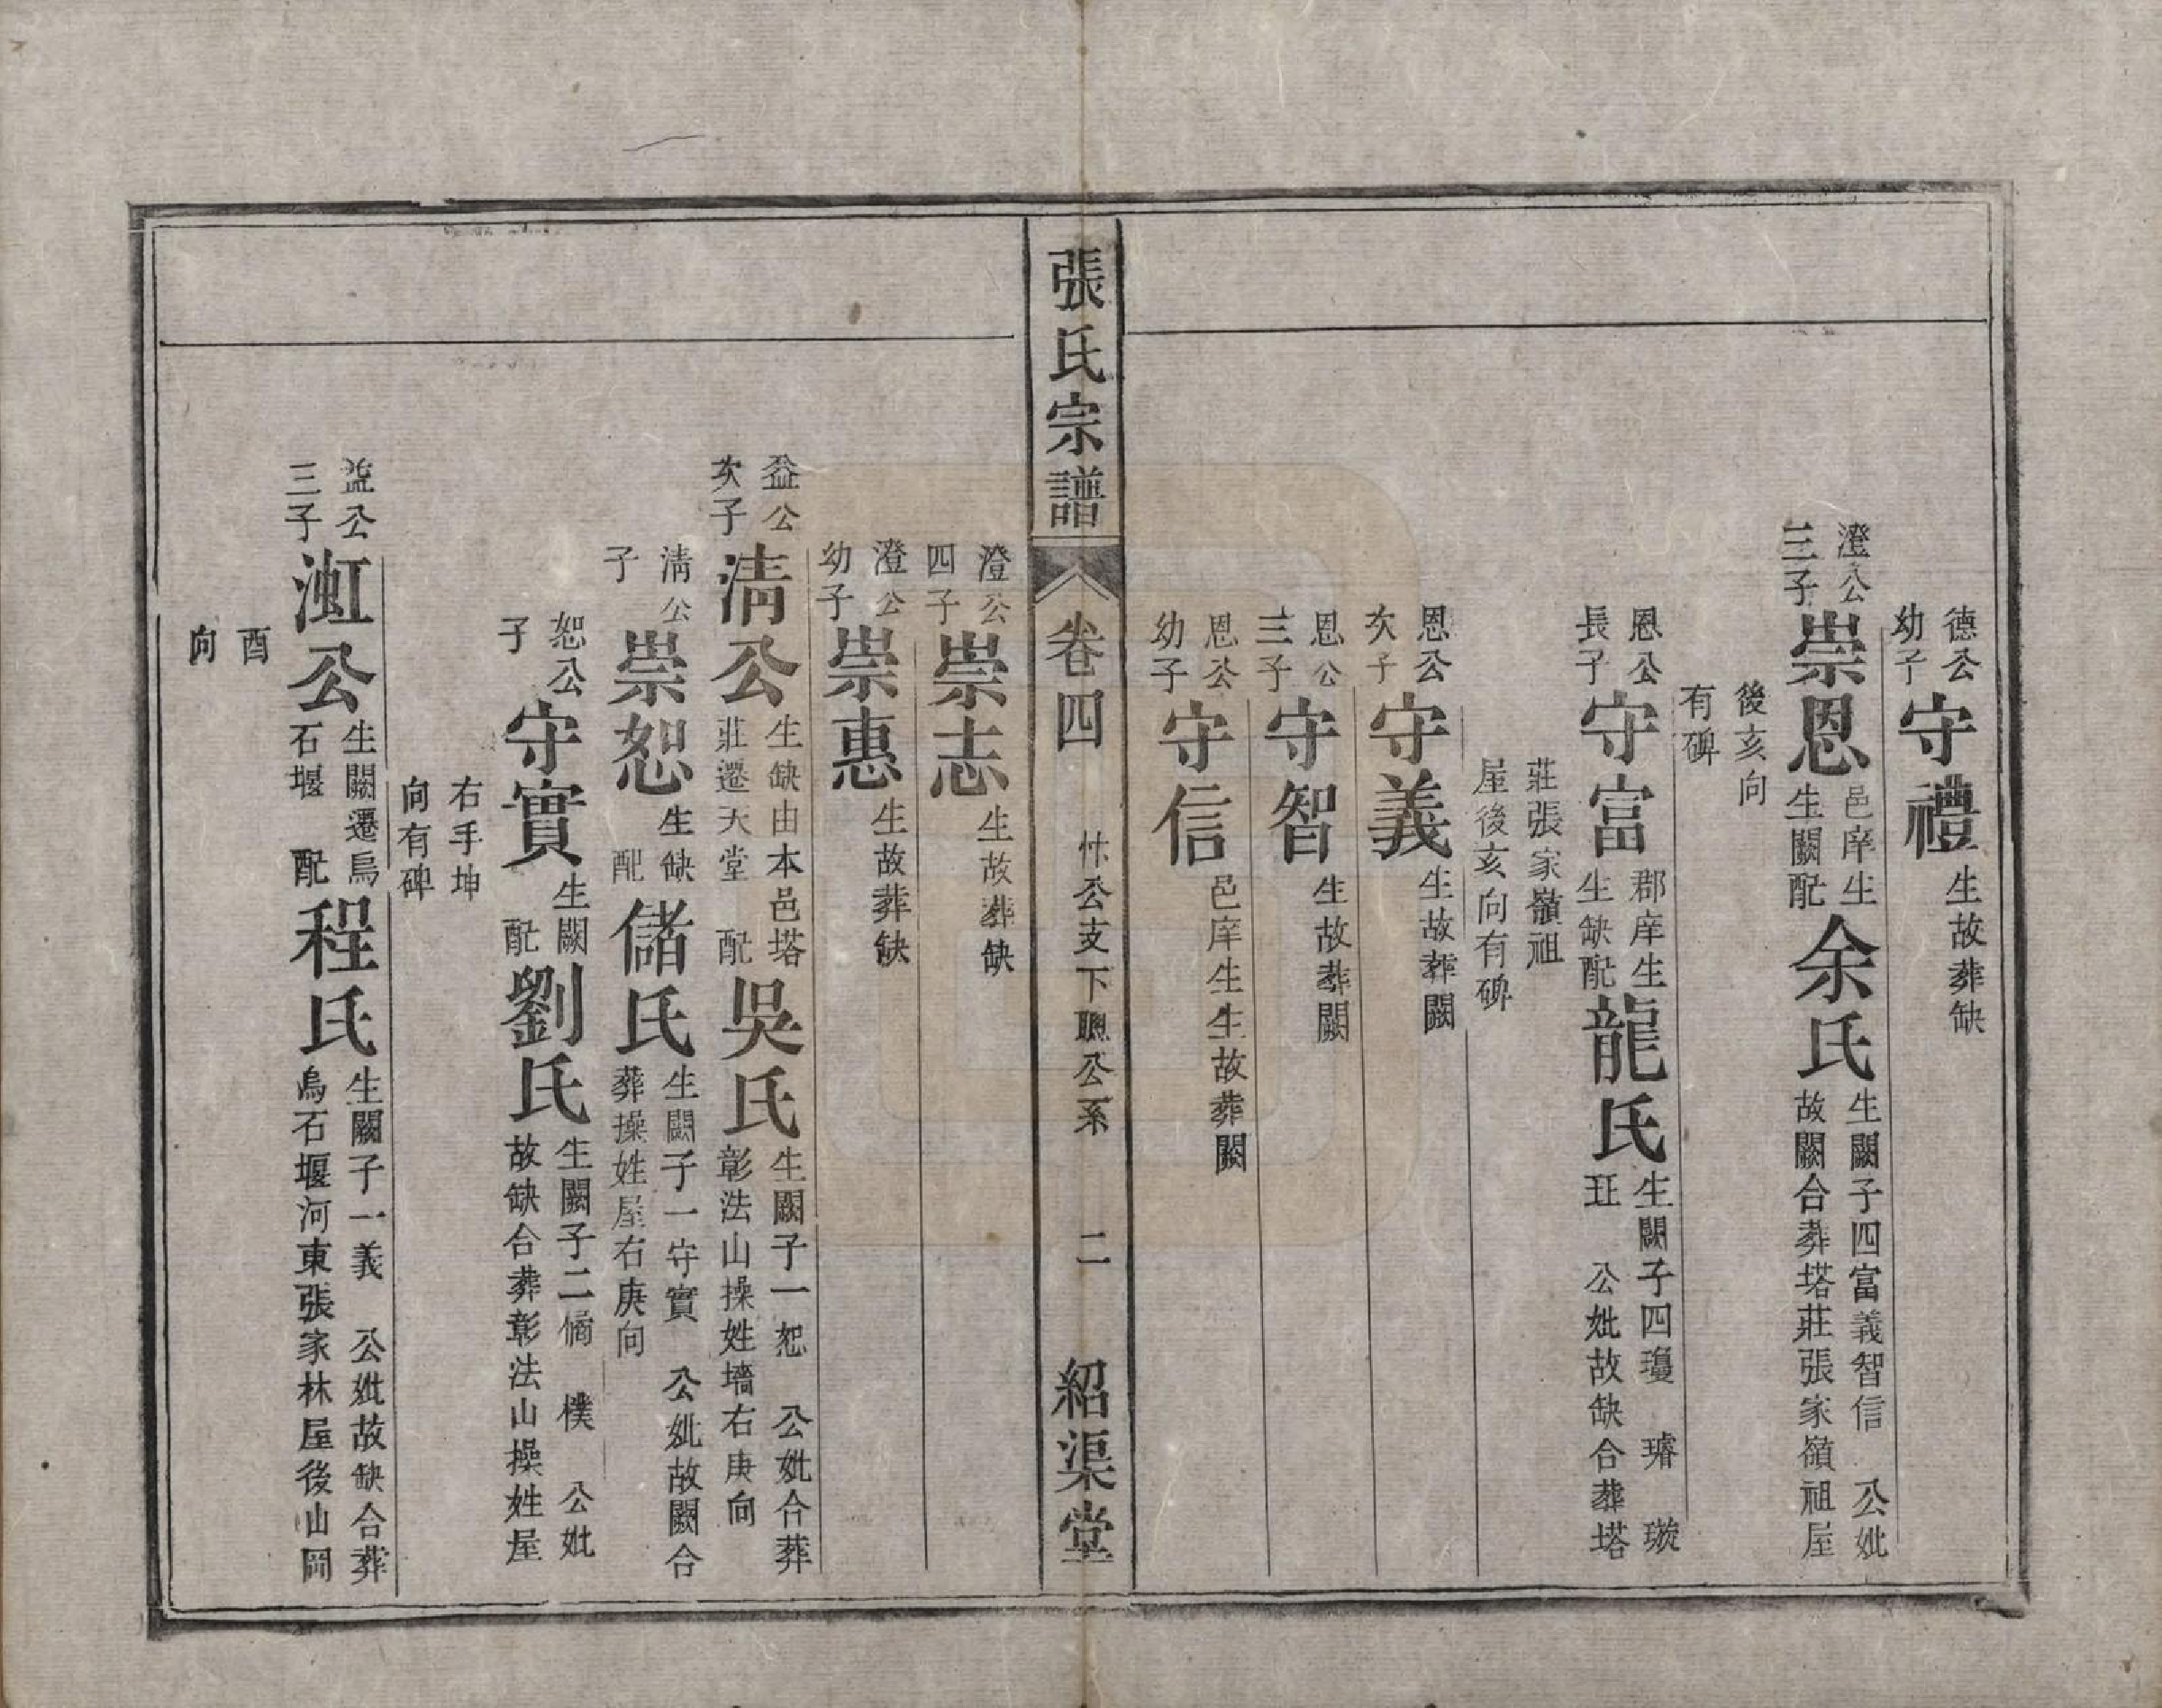 德公
幼子
守禮
生故葬缺
澄公
三子
崇恩
邑庠生
生闕配
余氏
生闕子四富義智信　公妣
故闕合葬塔莊張家嶺祖屋
後亥向
有碑
恩公
長子
守富
郡庠生
生缺配
龍氏
生闕子四瓊　璿　璇
玨　公妣故缺合葬塔
莊張家嶺祖
屋後亥向有碑
恩公
次子
守義
生故葬闕
恩公
三子
守智
生故葬闕
恩公
幼子
守信
邑庠生生故葬闕
張氏宗譜
卷四
公支下聰公系
二
紹渠堂
澄公
四子
崇志
生故葬缺
澄公
幼子
崇惠
生故葬缺
益公
次子
淸公
生缺由本邑塔
莊遷天堂　配
吳氏
生闕子一恕　公妣合葬
彰法山操姓墻右庚向
淸公
子
崇恕
生缺
配
儲氏
生闕子一守實　公妣故闕合
葬操姓屋右庚向
恕公
子
守實
生闕
配
劉氏
生闕子二脩　樸　公妣
故缺合葬彰法山操姓屋
右手坤
向有碑
益公
三子
渱公
生闕遷烏
石堰　配
程氏
生闕子一義　公妣故缺合葬
烏石堰河東張家林屋後山岡
酉
向